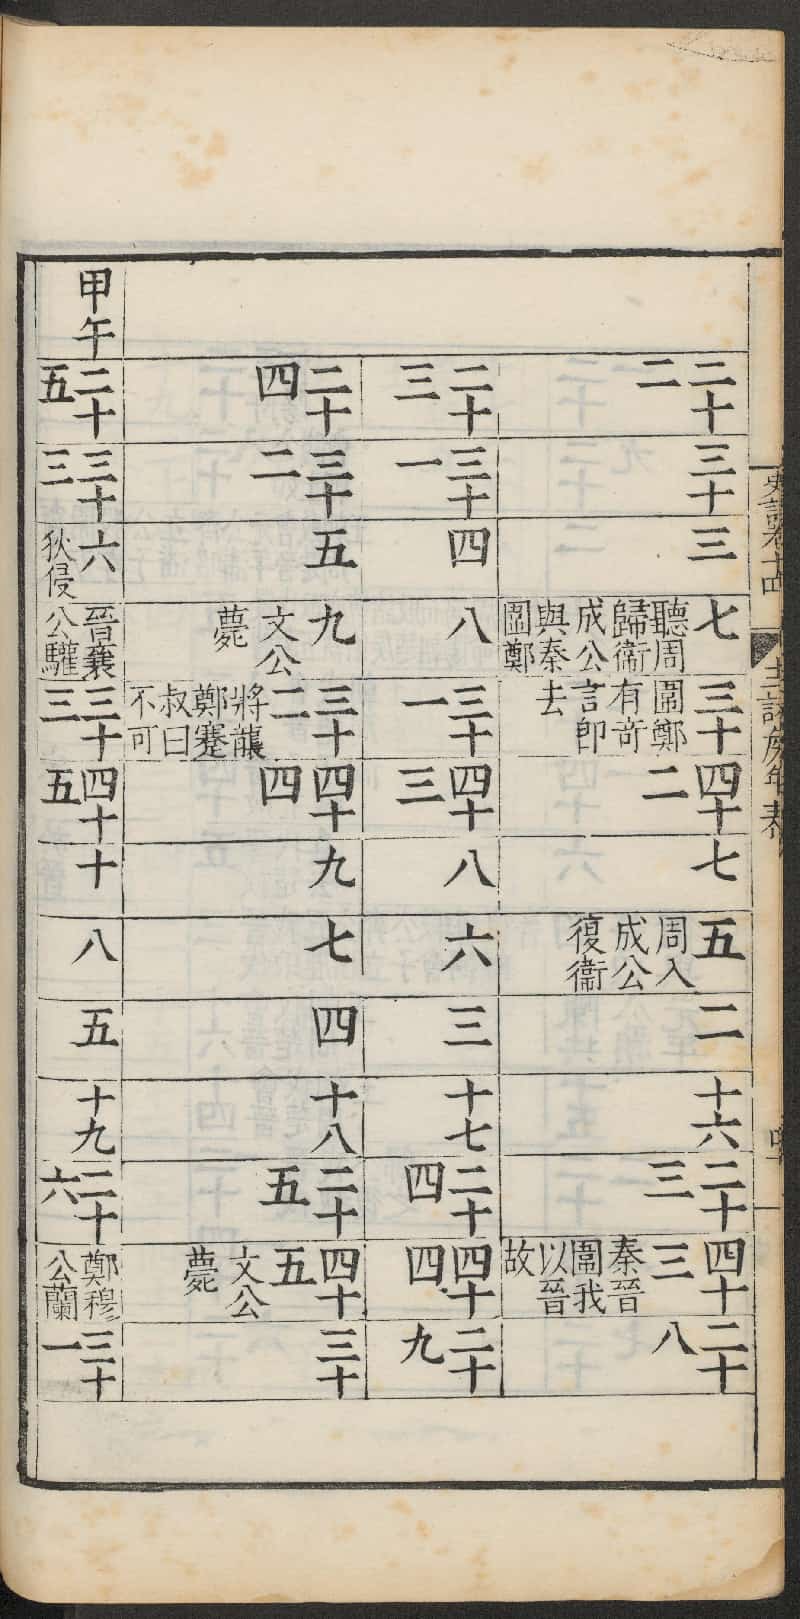 史記卷十四
十二諸侯年表
二十
二
三十
三
七
聽周
歸衛
成公
與秦
圍鄭
三十
圍鄭
有奇
言即
去
四十
二
七
五
周入
成公
復衛
二
十六
二十
三
四十
三
秦晉
圍我
以晉
故
二十
八
二十
三
三十
一
四
八
三十
一
四十
三
八
六
三
十七
二十
四
四十
四
二十
九
二十
四
三十
二
五
九
文公
薨
三十
二
將襲
鄭蹇
叔曰
不可
四十
四
九
七
四
十八
二十
五
四十
五
文公
薨
三十
甲午
二十
五
三十
三
六
狄侵
晉襄
公驩
三十
三
四十
五
十
八
五
十九
二十
六
鄭穆
公蘭
三十
一